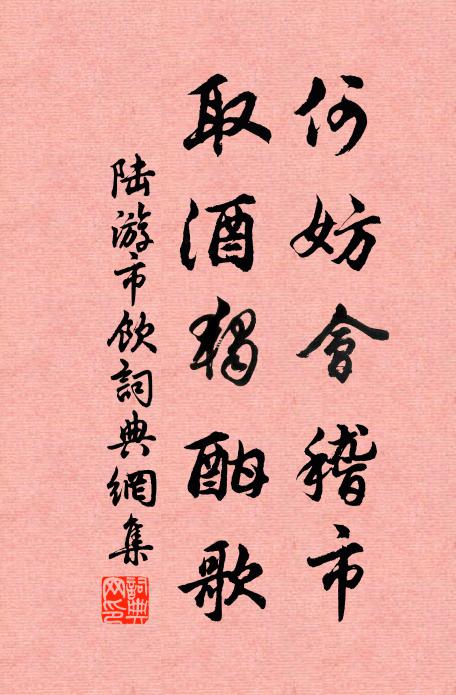 何妨會稽市
取酒獨酣歌
陆游市飲詞典網集
詞典網印